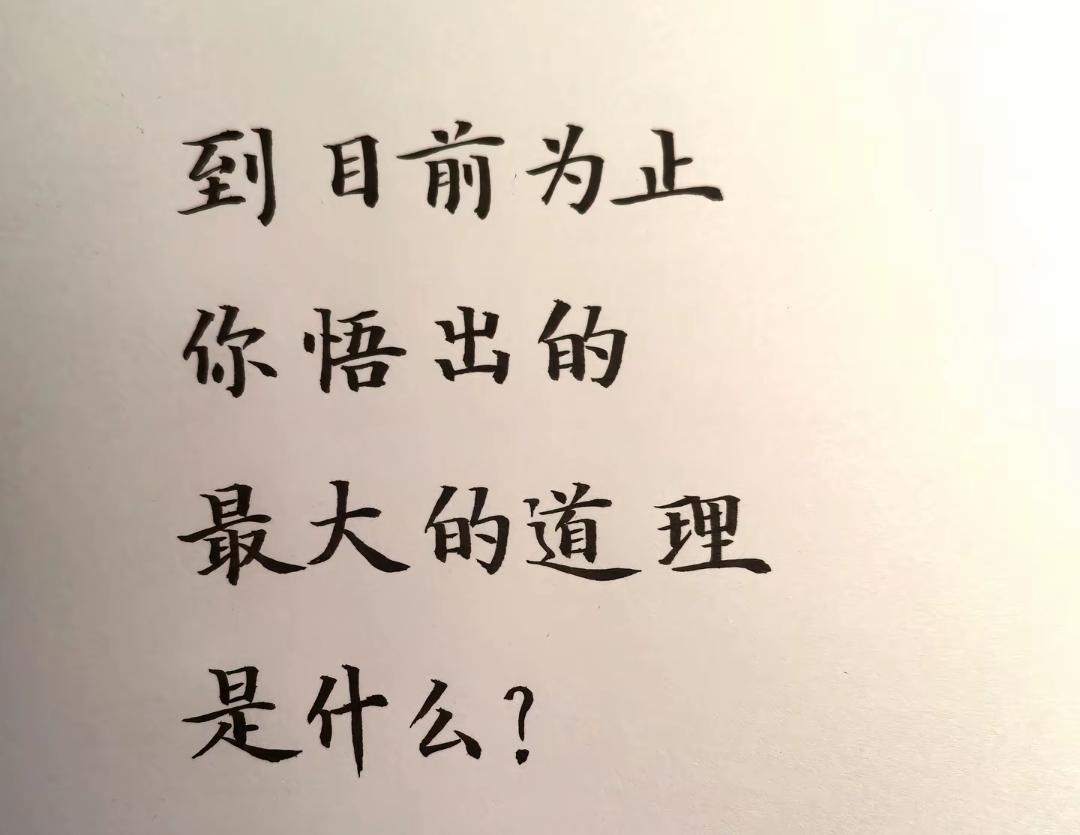 到目前为止
你悟出的
最大的道理
是什么?